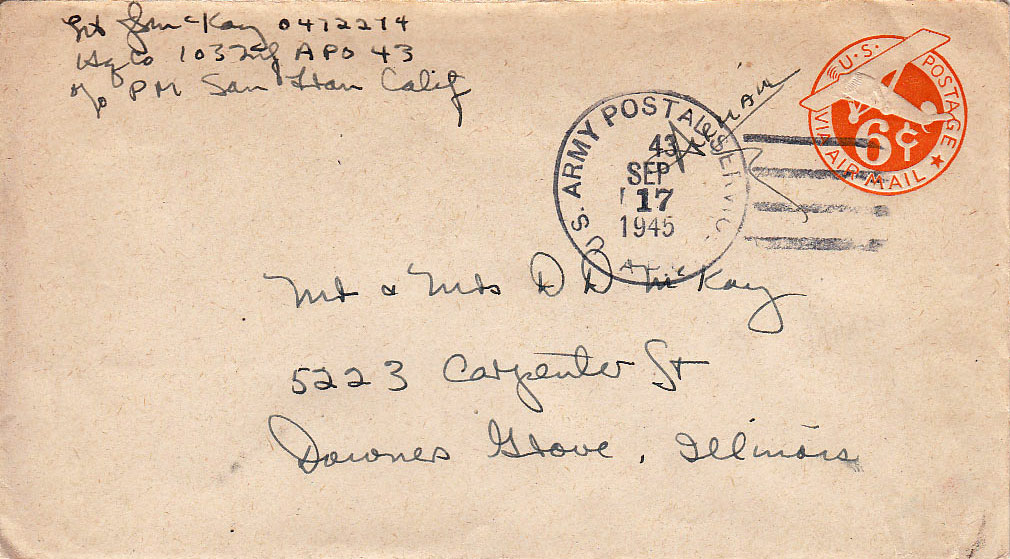 Lt J McKay 0472274
Hq Co 103 Inf APO 43
c/o PM San Fran Calif
U.S. POSTAGE
6¢
VIA AIR MAIL
U.S. ARMY POSTAL SERVIC
43
SEP
17
1945
A.P.
Mr & Mrs D D McKay
5223 Carpenter St
Downers Grove, Illinois